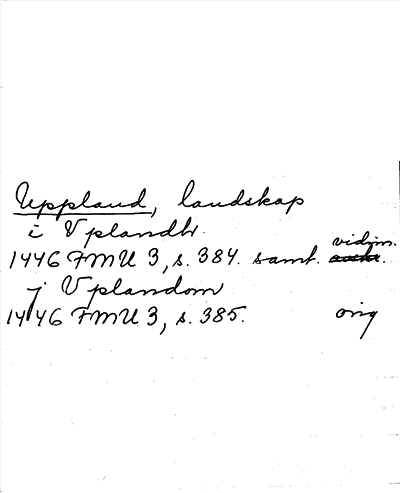 Uppland, landskap
i Vplandh.
1446 FMU 3, s. 384. samt. vidim.
j Vplandom
1446 FMU 3, s. 385. orig